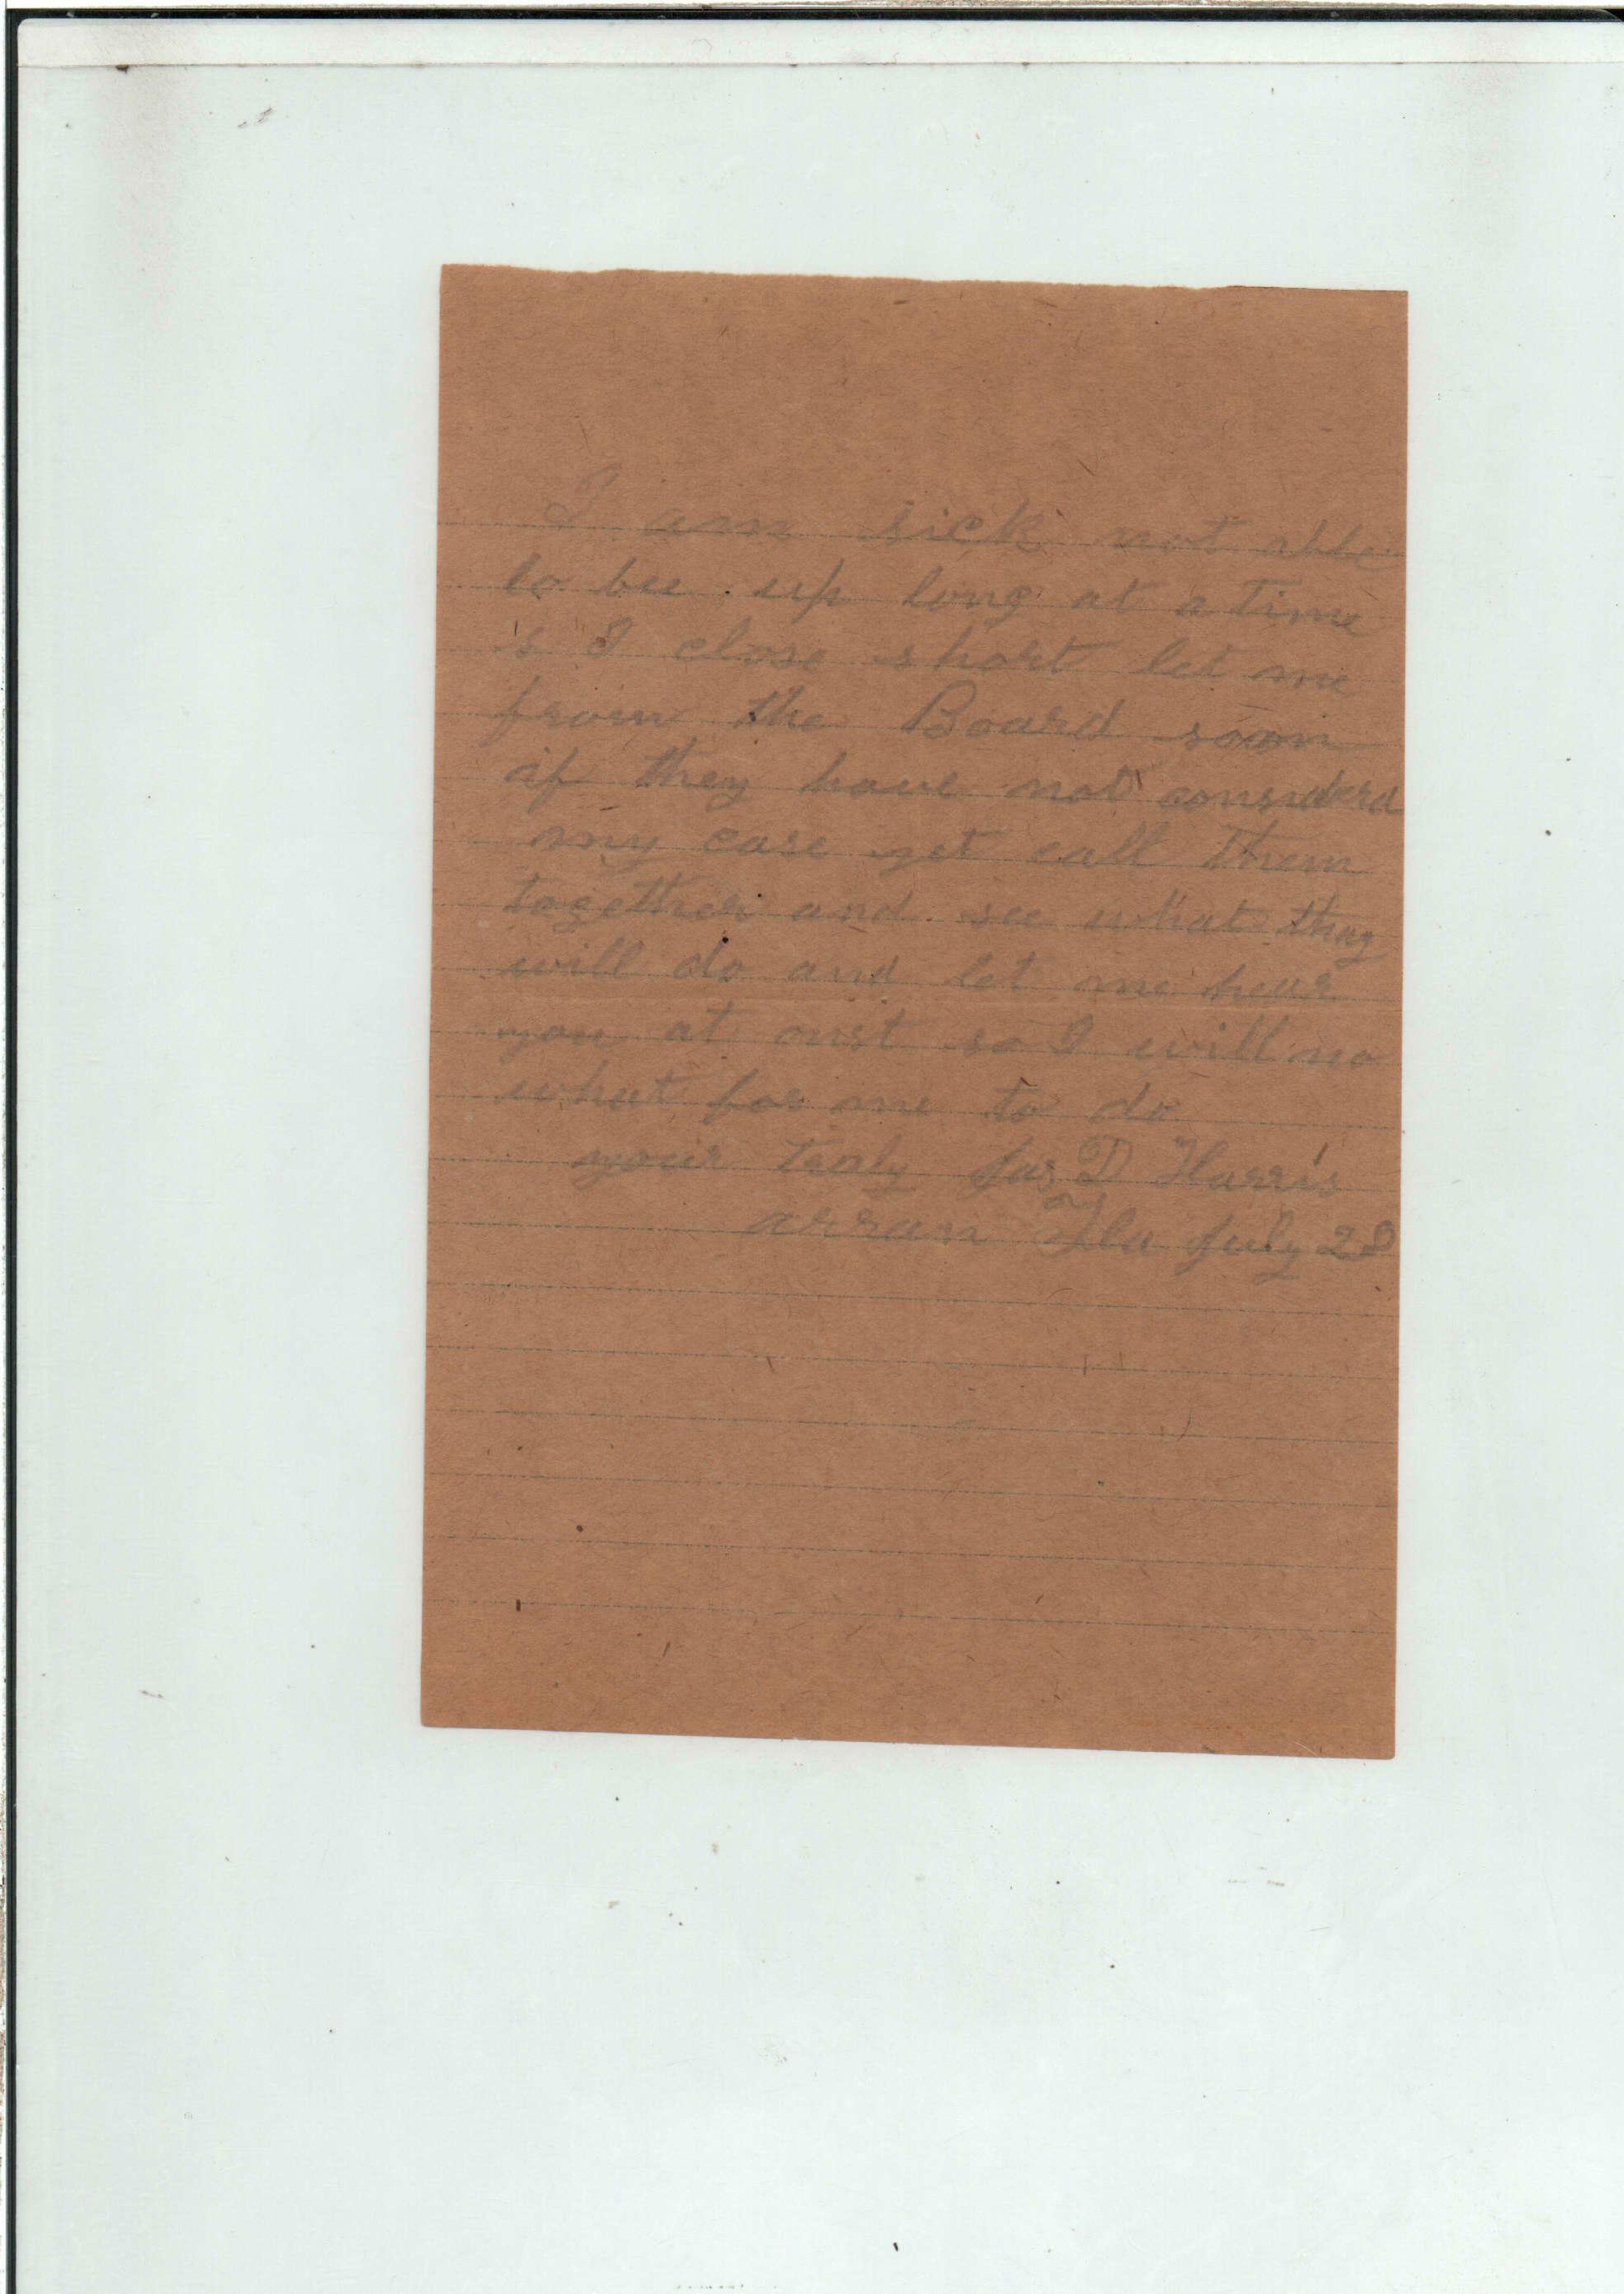 I am sick not able
to bee up long at a time
s I close short let me
from the Board soon
if they have not considerd
my case yet call them
together and see what thay
will do and let me hear
you at onst so I will no
what for me to do
your truly Jas D Harris
arran Fla July 28